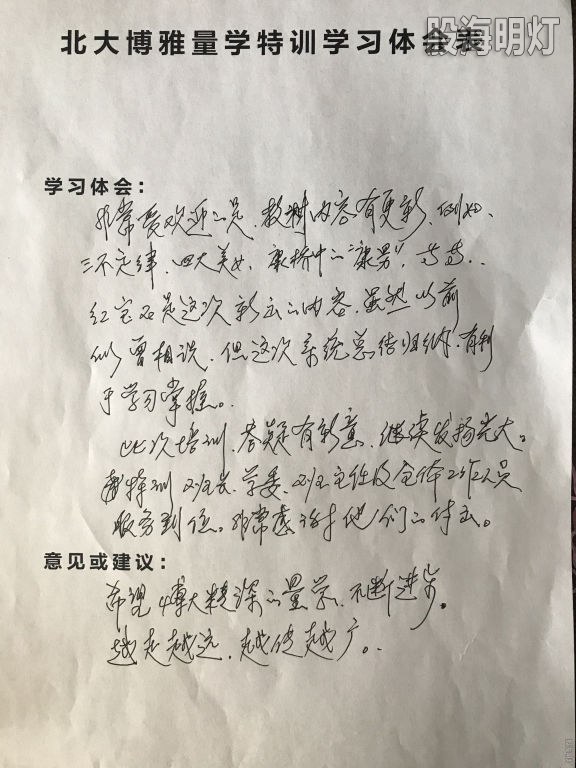 股海明灯
北大博雅量学特训学习体会表
学习体会：
非常受欢迎的是，教材内容有更新，例如，
三不定律，四大美女，康桥中的“康男”，等等..
红宝石是这次新云的内容，虽然以前
似曾相识，但这次系统总结归纳，有利
于学习掌握。
此次培训，答疑有新意，继续发扬光大。
特训班长、学委、班主任及全体工作人员
服务到位。非常感谢他们的付出。
意见或建议：
希望博大精深的量学，不断进步。
越走越远，越传越广。